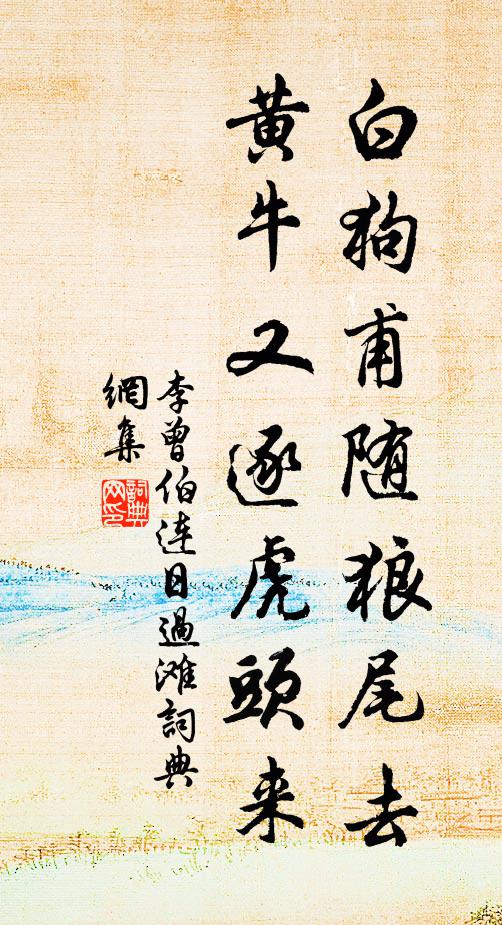 白狗甫随狼尾去
黄牛又逐虎頭来
李曾伯连日過滩詞典
網集
詞典
网印